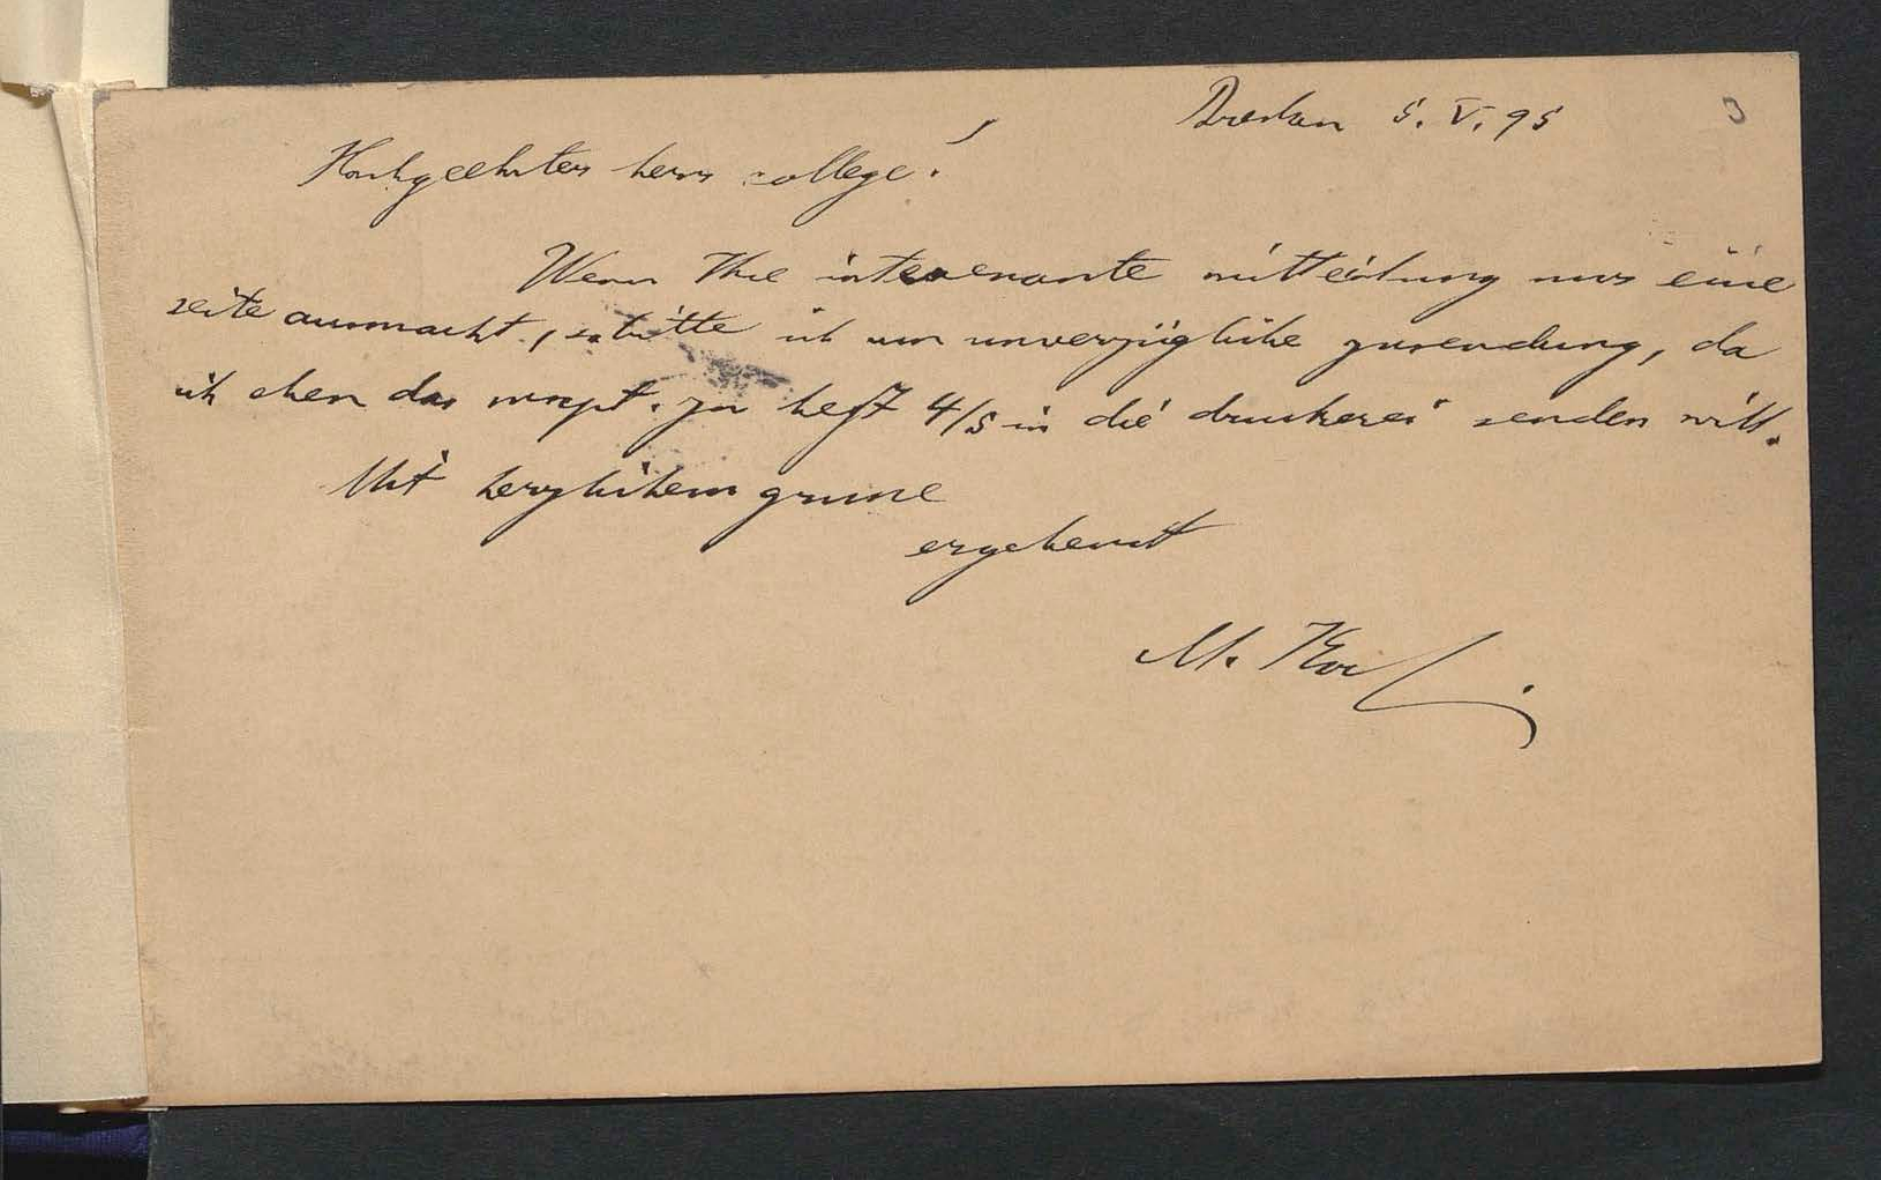 Breslau 5. V. 95
Hochgeehrter herr college!
Wenn Ihre interessante mitteilung nur eine
seite ausmacht, so bitte ich um unverzügliche zusendung, da
ich eben das mscpt. zu heft 4/5 in die druckerei senden will.
Mit herzlichem grusse
ergebenst
M. Koch.